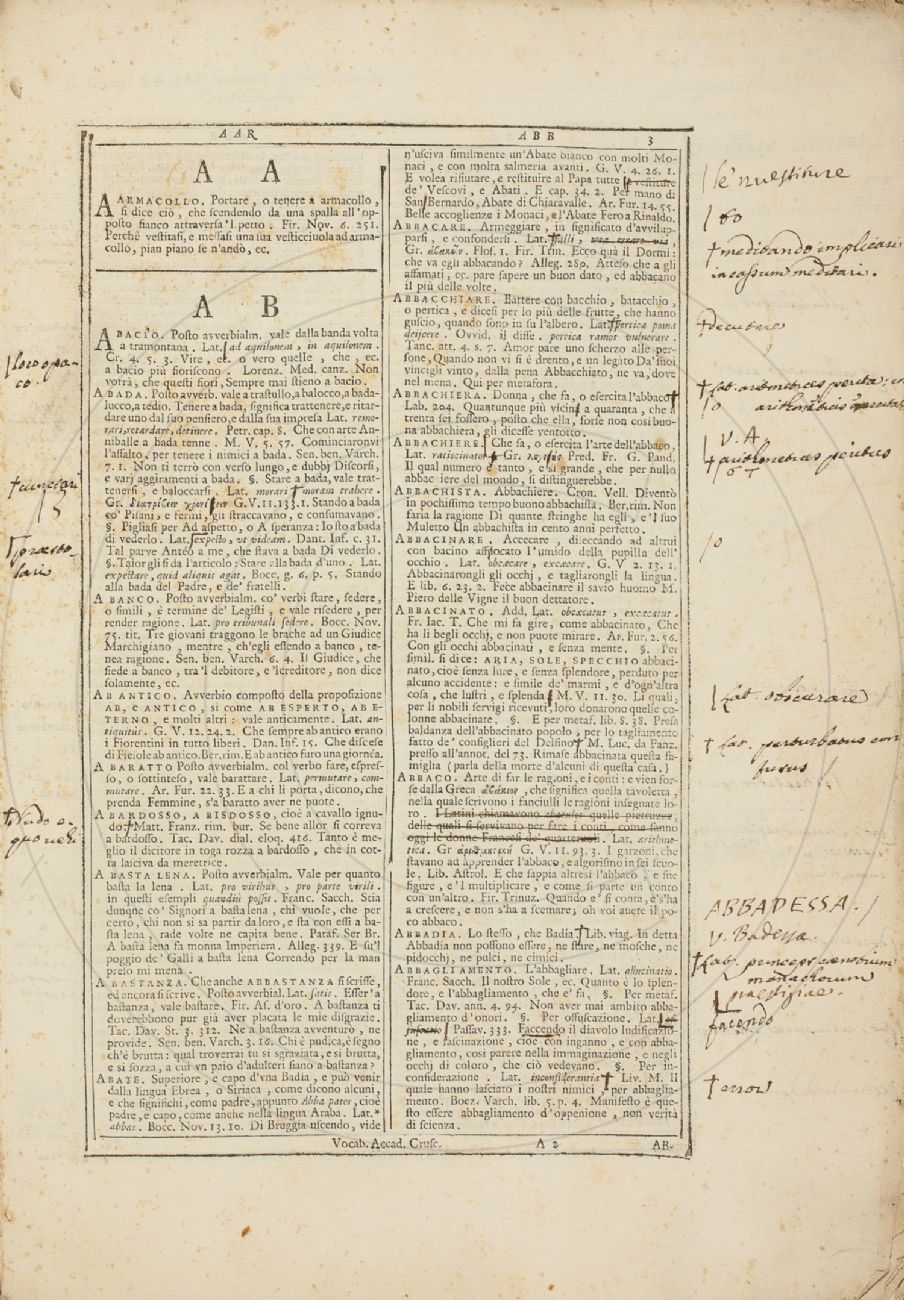 AAR
ABB
3
A A
AARMACOLLO. Portare, o tenere a armacollo,
si dice ciò, che scendendo da una spalla all'op-
posto fianco attraversa'l petto. Fir. Nov. 6. 251.
Perchè vestitasi, e messasi una sua vesticciuola ad arma-
collo, pian piano se n'andò, ec.
A B
ABACÌO. Posto avverbialm. vale dalla banda volta
a tramontana. Lat. ad aquilonem, in aquilonem.
Cr. 4. 5. 3. Vite, ec. o vero quelle, che, ec.
a bacìo più fioriscono. Lorenz. Med. canz. Non
votrà, che questi fiori, Sempre mai stieno a bacìo.
A BADA. Posto avverb. vale a trastullo, a balocco, a bada-
lucco, a tedio. Tenere a bada, significa trattenere, e ritar-
dare uno dal suo pensiero, e dalla sua impresa Lat. remo-
rari, retardare, detinere. Petr. cap. 8. Che con arte An-
niballe a bada tenne. M. V. 5. 57. Cominciaronvi
l'assalto, per tenere i nimici a bada. Sen. ben. Varch.
7. 1. Non ti terrò con verso lungo, e dubbj Discorsi,
e varj aggiramenti a bada. §. Stare a bada, vale trat-
tenersi, e baloccarsi. Lat. morari moram trahere.
Gr. G. V. 11. 133. 1. Stando a bada
co' Pisani, e fermi, gli straccavano, e consumavano.
§. Pigliasi per Ad aspetto, o A speranza: Io sto a bada
di vederlo. Lat. expecto, ut videam. Dant. Inf. c. 31.
Tal parve Antéo a me, che stava a bada Di vederlo.
§. Talor gli si dà l'articolo: Stare alla bada d'uno. Lat.
expectare, quid aliquis agat. Bocc. g. 6. p. 5. Stando
alla bada del Padre, e de' fratelli.
A BANCO. Posto avverbialm. co' verbi stare, sedere,
o simili, è termine de' Legisti, e vale risedere, per
render ragione. Lat. pro tribunali sedere. Bocc. Nov.
75. tit. Tre giovani traggono le brache ad un Giudice
Marchigiano, mentre, ch'egli essendo a banco, te-
nea ragione. Sen. ben. Varch. 6. 4. Il Giudice, che
siede a banco, tra'l debitore, e 'l creditore, non dice
solamente, ec.
AB ANTICO. Avverbio composto della proposizione
AB, e ANTICO, sì come AB ESPERTO, AB E-
TERNO, e molti altri: vale anticamente. Lat. an-
tiquitùs. G. V. 12. 24. 2. Che sempre ab antico erano
i Fiorentini in tutto liberi. Dan. Inf. 15. Che discese
di Fiesole ab antico. Ber. rim. E ab antico furo una gionca.
A BARATTO Posto avverbialm. col verbo fare, espres-
so, o sottinteso, vale barattare. Lat, permutare, com-
mutare. Ar. Fur. 22. 33. E a chi li porta, dicono, che
prenda Femmine, s'a baratto aver ne puote.
A BARDOSSO, A BISDOSSO, cioè a cavallo ignu-
do Matt. Franz. rim. bur. Se bene allor si correva
a bardosso. Tac. Dav. dial. eloq. 416. Tanto è me-
glio il dicitore in toga rozza a bardosso, che in cot-
ta lasciva da meretrice.
A BASTA LENA. Posto avverbialm. Vale per quanto
basta la lena. Lat. pro viribus, pro parte virili.
in questi esempli quamdiù possit. Franc. Sacch. Stia
dunque co' Signori a basta lena, chi vuole, che per
certo, chi non si sa partir da loro, e sta con essi a ba-
sta lena, rade volte ne capita bene. Pataf. Ser Br.
A basta lena fa monna Imperiera. Alleg. 339. E su'l
poggio de' Galli a basta lena Correndo per la man
preso mi mena.
A BASTANZA. Che anche ABBASTANZA si scrisse,
ed ancora si scrive. Posto avverbial. Lat. satis. Esser'a
bastanza, vale bastare. Fir. As. d'oro. A bastanza ti
doverebbono pur già aver placata le mie disgrazie.
Tac. Dav. St. 3. 312. Ne a bastanza avventurò, ne
provide. Sen. ben. Varch. 3. 16. Chi è pudica, è segno
ch'è brutta: qual troverrai tu sì sgraziata, e sì brutta,
e sì sozza, a cui un paio d'adulteri siano a bastanza?
ABATE. Superiore, e capo d'vna Badia, e può venir
dalla lingua Ebrea, o Siriaca, come dicono alcuni,
e che significhi, come padre, appunto Abba pater, cioè
padre, e capo, come anche nella lingua Araba. Lat.*
abbas. Bocc. Nov. 13. 10. Di Bruggia uscendo, vide
n'usciva similmente un'Abate bianco con molti Mo-
naci, e con molta salmeria avanti. G. V. 4. 26. 1.
E volea rifiutare, e restituire al Papa tutte le vestiture
de' Vescovi, e Abati. E cap. 34. 2. Per mano di
San Bernardo, Abate di Chiaravalle. Ar. Fur. 14. 55.
Belle accoglienze i Monaci, e l'Abate Fero a Rinaldo.
ABBACARE. Armeggiare, in significato d'avvilup-
parsi, e confondersi. Lat. falli,
Gr. Flos. 1. Fir. Trin. Ecco quà il Dormi:
che va egli abbacando? Alleg. 289. Atteso che a gli
affamati, ec. pare sapere un buon dato, ed abbacano
il più delle volte.
ABBACCHIARE. Battere con bacchio, batacchio,
o pertica, e dicesi per lo più delle frutte, che hanno
guscio, quando sono in su l'albero. Lat. pertica poma
deijcere. Ovvid, il disse. pertica ramos vulnerare.
Tanc. att. 4. s. 7. Amor pare uno scherzo alle per-
sone, Quando non vi si è drento, e un legáto Da' suoi
vincigli vinto, dalla pena Abbacchiato, ne va, dove
nel mena. Qui per metafora.
ABBACHIERA. Donna, che fa, o esercita l'abbaco
Lab. 204. Quantunque più vicin a quaranta, che a
trenta sei fossero, posto che ella, forse non così buo-
na abbachiera, gli dicesse ventotto.
ABBACHIERE Che fa, o esercita l'arte dell'abbaco,
Lat. ratiocinator Gr. Pred. Fr. G. Pand.
Il qual numero è tanto, e sì grande, che per nullo
abbachiere del mondo, si distinguerebbe.
ABBACHISTA. Abbachiere. Cron. Vell. Diventò
in pochissimo tempo buono abbachista. Ber. rim. Non
saria la ragione Di quante stringhe ha egli, e'l suo
Muletto Un abbachista in cento anni perfetto.
ABBACINARE. Accecare, di. eccando ad altrui
con bacino affocato l'umido della pupilla dell'
occhio. Lat. obcæcare, excæcare. G. V 2. 13. 1.
Abbacinarongli gli occhj, e tagliarongli la lingua.
E lib. 6. 23. 2. Fece abbacinare il savio huomo M.
Piero delle Vigne il buon dettatore.
ABBACINATO. Add. Lat. obcæcatus, excæcatus.
Fr. Iac. T. Che mi fa gire, come abbacinato, Che
ha li begli occhj, e non puote mirare. Ar. Fur. 2. 56.
Con gli occhi abbacinati, e senza mente. §. Per
simil. si dice: ARIA, SOLE, SPECCHIO abbaci-
nato, cioè senza luce, e senza splendore, perduto per
alcuno accidente: e simile de' marmi, e d'ogn'altra
cosa, che lustri, e splenda M. V. 11. 30. Li quali,
per li nobili servigi ricevuti, loro donarono quelle co-
lonne abbacinate. §. E per metaf. lib. 8. 38. Presa
baldanza dell'abbacinato popolo, per lo tagliamento
fatto de' consiglieri del Delfino M. Luc. da Panz.
presso all'annot. del 73. Rimase abbacinata questa fa-
miglia (parla della morte d'alcuni di questa casa.)
ABBACO. Arte di far le ragioni, e i conti: e vien for-
se dalla Greca, che significa quella tavoletta,
nella quale scrivono i fanciulli le ragioni insegnate lo-
ro. I Latini chiamavono quelle pietruzze,
delle quali si servivano per fare i conti, come fanno
oggi le donne Francesi de' quarteruoli. Lat. arithme-
tica. Gr G. V. 11. 93. 3. I garzoni, che
stavano ad apprender l'abbaco, e algorismo in sei scuo-
le. Lib. Astrol. E che sappia altresì l'abbaco, e sue
figure, e'l multiplicare, e come si parte un conto
con un'altro. Fir. Trinuz. Quando e' si conta, e's'ha
a crescere, e non s'ha a scemare; oh voi avete il po-
co abbaco.
ABBADIA. Lo stesso, che Badìa Lib. viag. In detta
Abbadia non possono essere, ne stare, ne mosche, ne
pidocchj, ne pulci, ne cimici.
ABBAGLIAMENTO. L'abbagliare. Lat. allucinatio.
Franc. Sacch. Il nostro Sole, ec. Quanto è lo splen-
dore, e l'abbagliamento, che e' fa, §. Per metaf.
Tac. Dav. ann. 4. 94. Non aver mai ambito abba-
gliamento d'onori. §. Per offuscazione. Lat.
Passav. 333. Faccendo il diavolo ludificazio-
ne, e fascinazione, cioè con inganno, e con abba-
gliamento, così parere nella immaginazione, e negli
occhj di coloro, che ciò vedevano. §. Per in-
considerazione. Lat. inconsiderantia Liv. M. Il
quale hanno lasciato i nostri nimici, per abbaglia-
mento. Boez. Varch. lib. 5. p. 4. Manifesto è que-
sto essere abbagliamento d'oppenione, non verità
di scienza.
Vocab. Accad. Crusc.
A 2
AB-
loco opa-
co.
cunctari
præsto-
lari
Nudo e-
quo vehi
le' nvestiture
meditando implicari
in cassum meditari.
decutere
Lat. arithmetices perita
V. A.
arithmetices peritus
o
Lat. obscurare
Lat. perturbatus con-
fusus
ABBADESSA.
v. Badessa.
Lat. princeps cœnobium
monachorum
præstigiae.
facendo
error